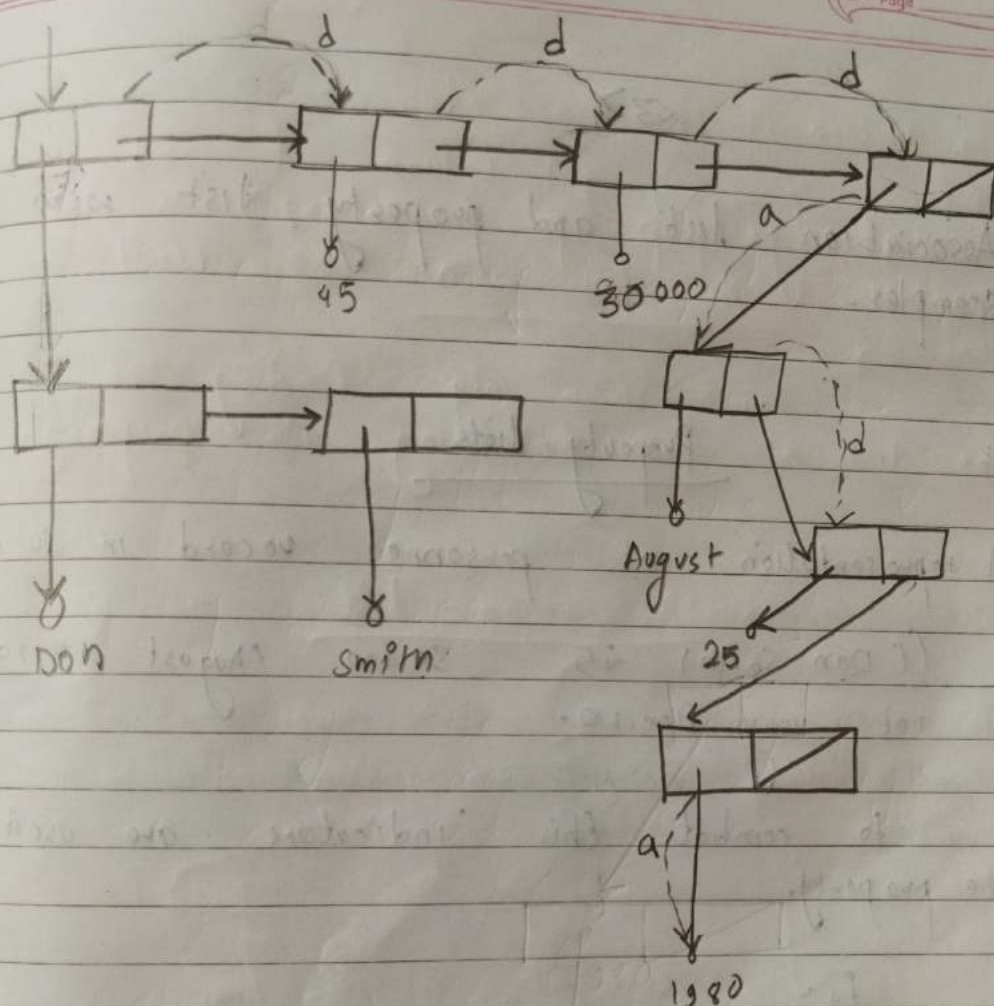 Page
d d d
a
45 30000
d
August
25
Don Smith
a
1980